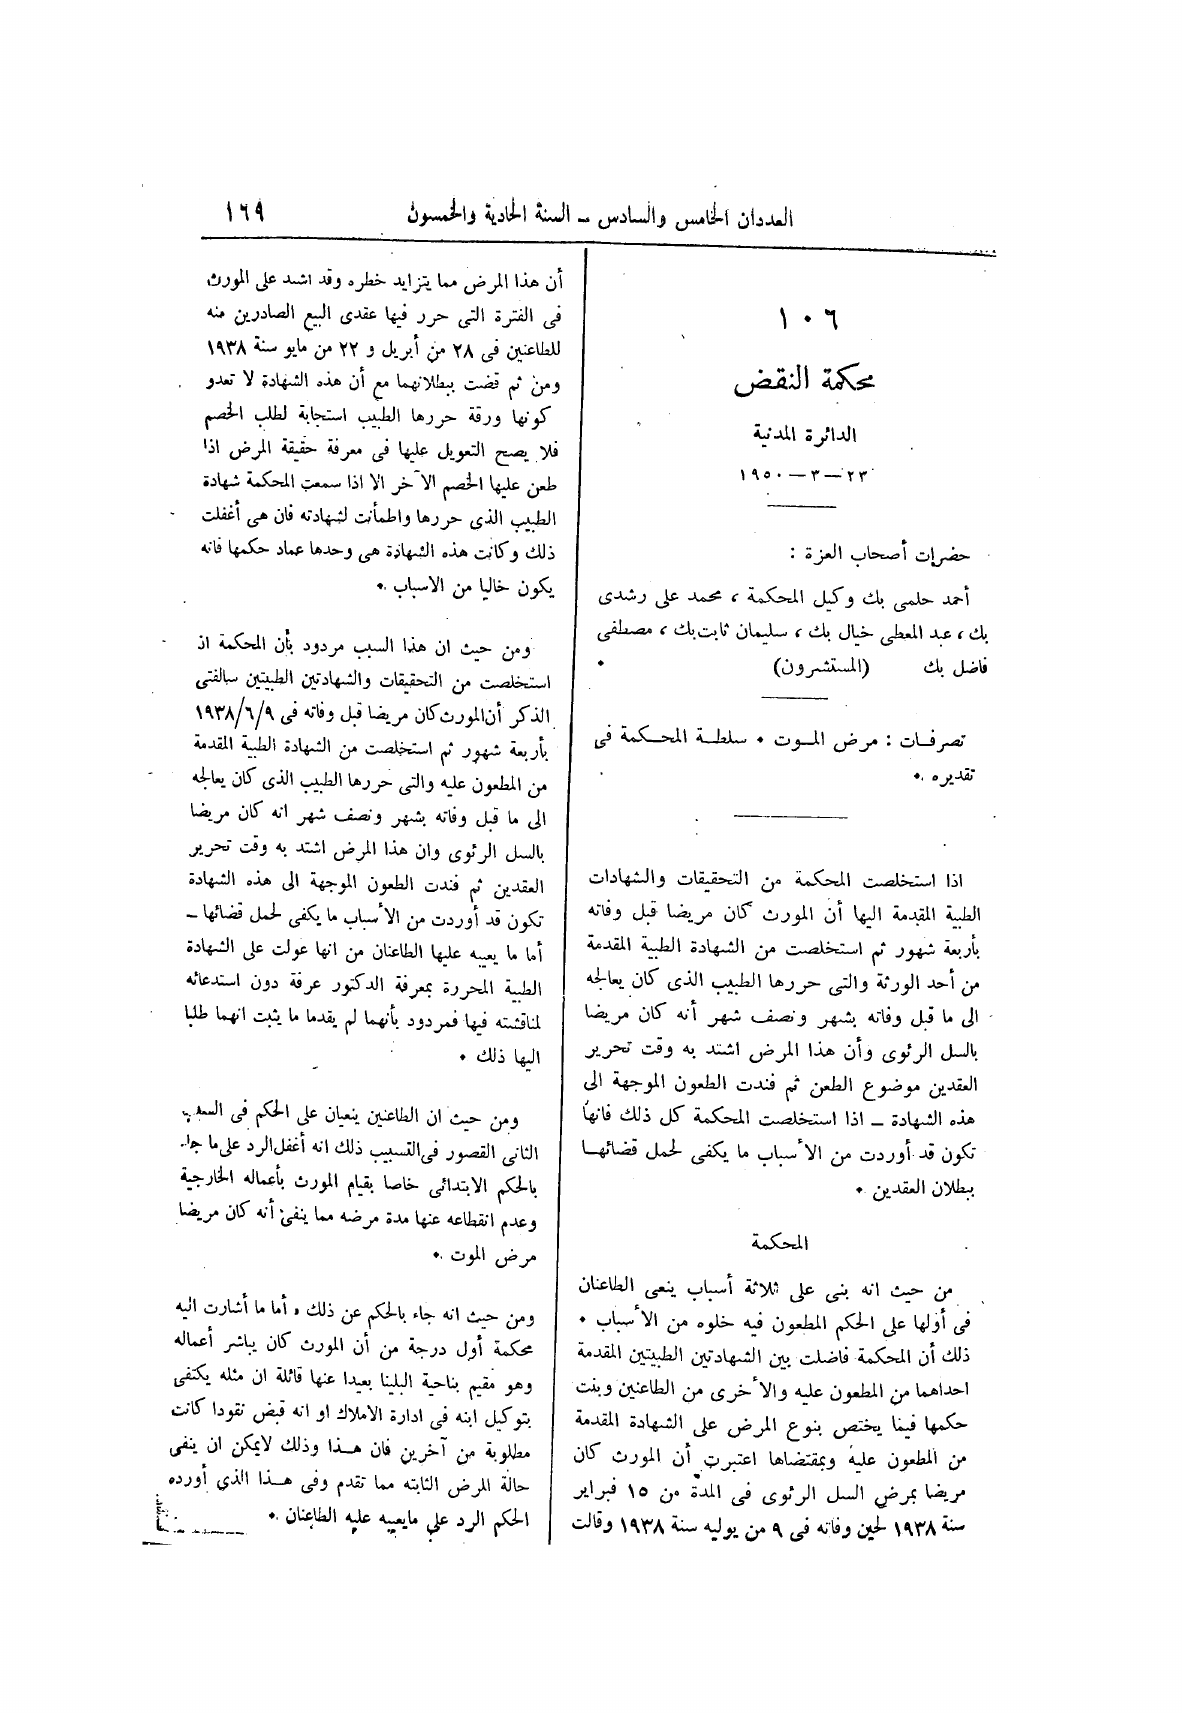 العددان الخامس والسادس – السنة الحادية والخمسون
١٦٩
١٠٦
محكمة النقض
الدائرة المدنية
٢٣ – ٣ – ١٩٥٠
حضرات أصحاب العزة :
أحمد حلمى بك وكيل المحكمة ، محمد على رشدى
بك ، عبد المعطى خيال بك ، سليمان ثابت بك ، مصطفى
فاضل بك (المستشرون) .
تصرفات : مرض الموت . سلطة المحكمة فى
تقديره .
اذا استخلصت المحكمة من التحقيقات والشهادات
الطبية المقدمة اليها أن المورث كان مريضا قبل وفاته
بأربعة شهور ثم استخلصت من الشهادة الطبية المقدمة
من أحد الورثة والتى حررها الطبيب الذى كان يعالجه
الى ما قبل وفاته بشهر ونصف شهر أنه كان مريضا
بالسل الرئوى وأن هذا المرض اشتد به وقت تحرير
العقدين موضوع الطعن ثم فندت الطعون الموجهة الى
هذه الشهادة – اذا استخلصت المحكمة كل ذلك فانها
تكون قد أوردت من الأسباب ما يكفى لحمل قضائها
ببطلان العقدين .
المحكمة
من حيث انه بنى على ثلاثة أسباب ينعى الطاعنان
فى أولها على الحكم المطعون فيه خلوه من الأسباب .
ذلك أن المحكمة فاضلت بين الشهادتين الطبيتين المقدمة
احداهما من المطعون عليه والأخرى من الطاعنين وبنت
حكمها فيما يختص بنوع المرض على الشهادة المقدمة
من المطعون عليه وبمقتضاها اعتبرت أن المورث كان
مريضا بمرض السل الرئوى فى المدة من ١٥ فبراير
سنة ١٩٣٨ لحين وفاته فى ٩ من يوليه سنة ١٩٣٨ وقالت
أن هذا المرض مما يتزايد خطره وقد اشتد على المورث
فى الفترة التى حرر فيها عقدى البيع الصادرين منه
للطاعنين فى ٢٨ من أبريل و ٢٢ من مايو سنة ١٩٣٨
ومن ثم قضت ببطلانهما مع أن هذه الشهادة لا تعدو
كونها ورقة حررها الطبيب استجابة لطلب الخصم
فلا يصح التعويل عليها فى معرفة حقيقة المرض اذا
طعن عليها الخصم الآخر الا اذا سمعت المحكمة شهادة
الطبيب الذى حررها واطمأنت لشهادته فان هى أغفلت
ذلك وكانت هذه الشهادة هى وحدها عماد حكمها فانه
يكون خاليا من الاسباب .
ومن حيث ان هذا السبب مردود بأن المحكمة اذ
استخلصت من التحقيقات والشهادتين الطبيتين سالفتى
الذكر أن المورث كان مريضا قبل وفاته فى ١٩٣٨/٦/٩
بأربعة شهور ثم استخلصت من الشهادة الطبية المقدمة
من المطعون عليه والتى حررها الطبيب الذى كان يعالجه
الى ما قبل وفاته بشهر ونصف شهر انه كان مريضا
بالسل الرئوى وان هذا المرض اشتد به وقت تحرير
العقدين ثم فندت الطعون الموجهة الى هذه الشهادة
تكون قد أوردت من الأسباب ما يكفى لحمل قضائها –
أما ما يعيبه عليها الطاعنان من انها عولت على الشهادة
الطبية المحررة بمعرفة الدكتور عرفة دون استدعائه
لمناقشته فيها فمردود بأنهما لم يقدما ما يثبت انهما طلبا
اليها ذلك .
ومن حيث ان الطاعنين ينعيان على الحكم فى السبب
الثانى القصور فى التسبيب ذلك انه أغفل الرد على ما جاء
بالحكم الابتدائى خاصا بقيام المورث بأعماله الخارجية
وعدم انقطاعه عنها مدة مرضه مما ينفى أنه كان مريضا
مرض الموت .
ومن حيث انه جاء بالحكم عن ذلك ، أما ما أشارت اليه
محكمة أول درجة من أن المورث كان يباشر أعماله
وهو مقيم بناحية البلينا بعيدا عنها قائلة ان مثله يكتفى
بتوكيل ابنه فى ادارة الاملاك او انه قبض نقودا كانت
مطلوبة من آخرين فان هذا وذلك لايمكن ان ينفى
حالة المرض الثابته مما تقدم وفى هذا الذى أورده
الحكم الرد على مايعيبه عليه الطاعنان .